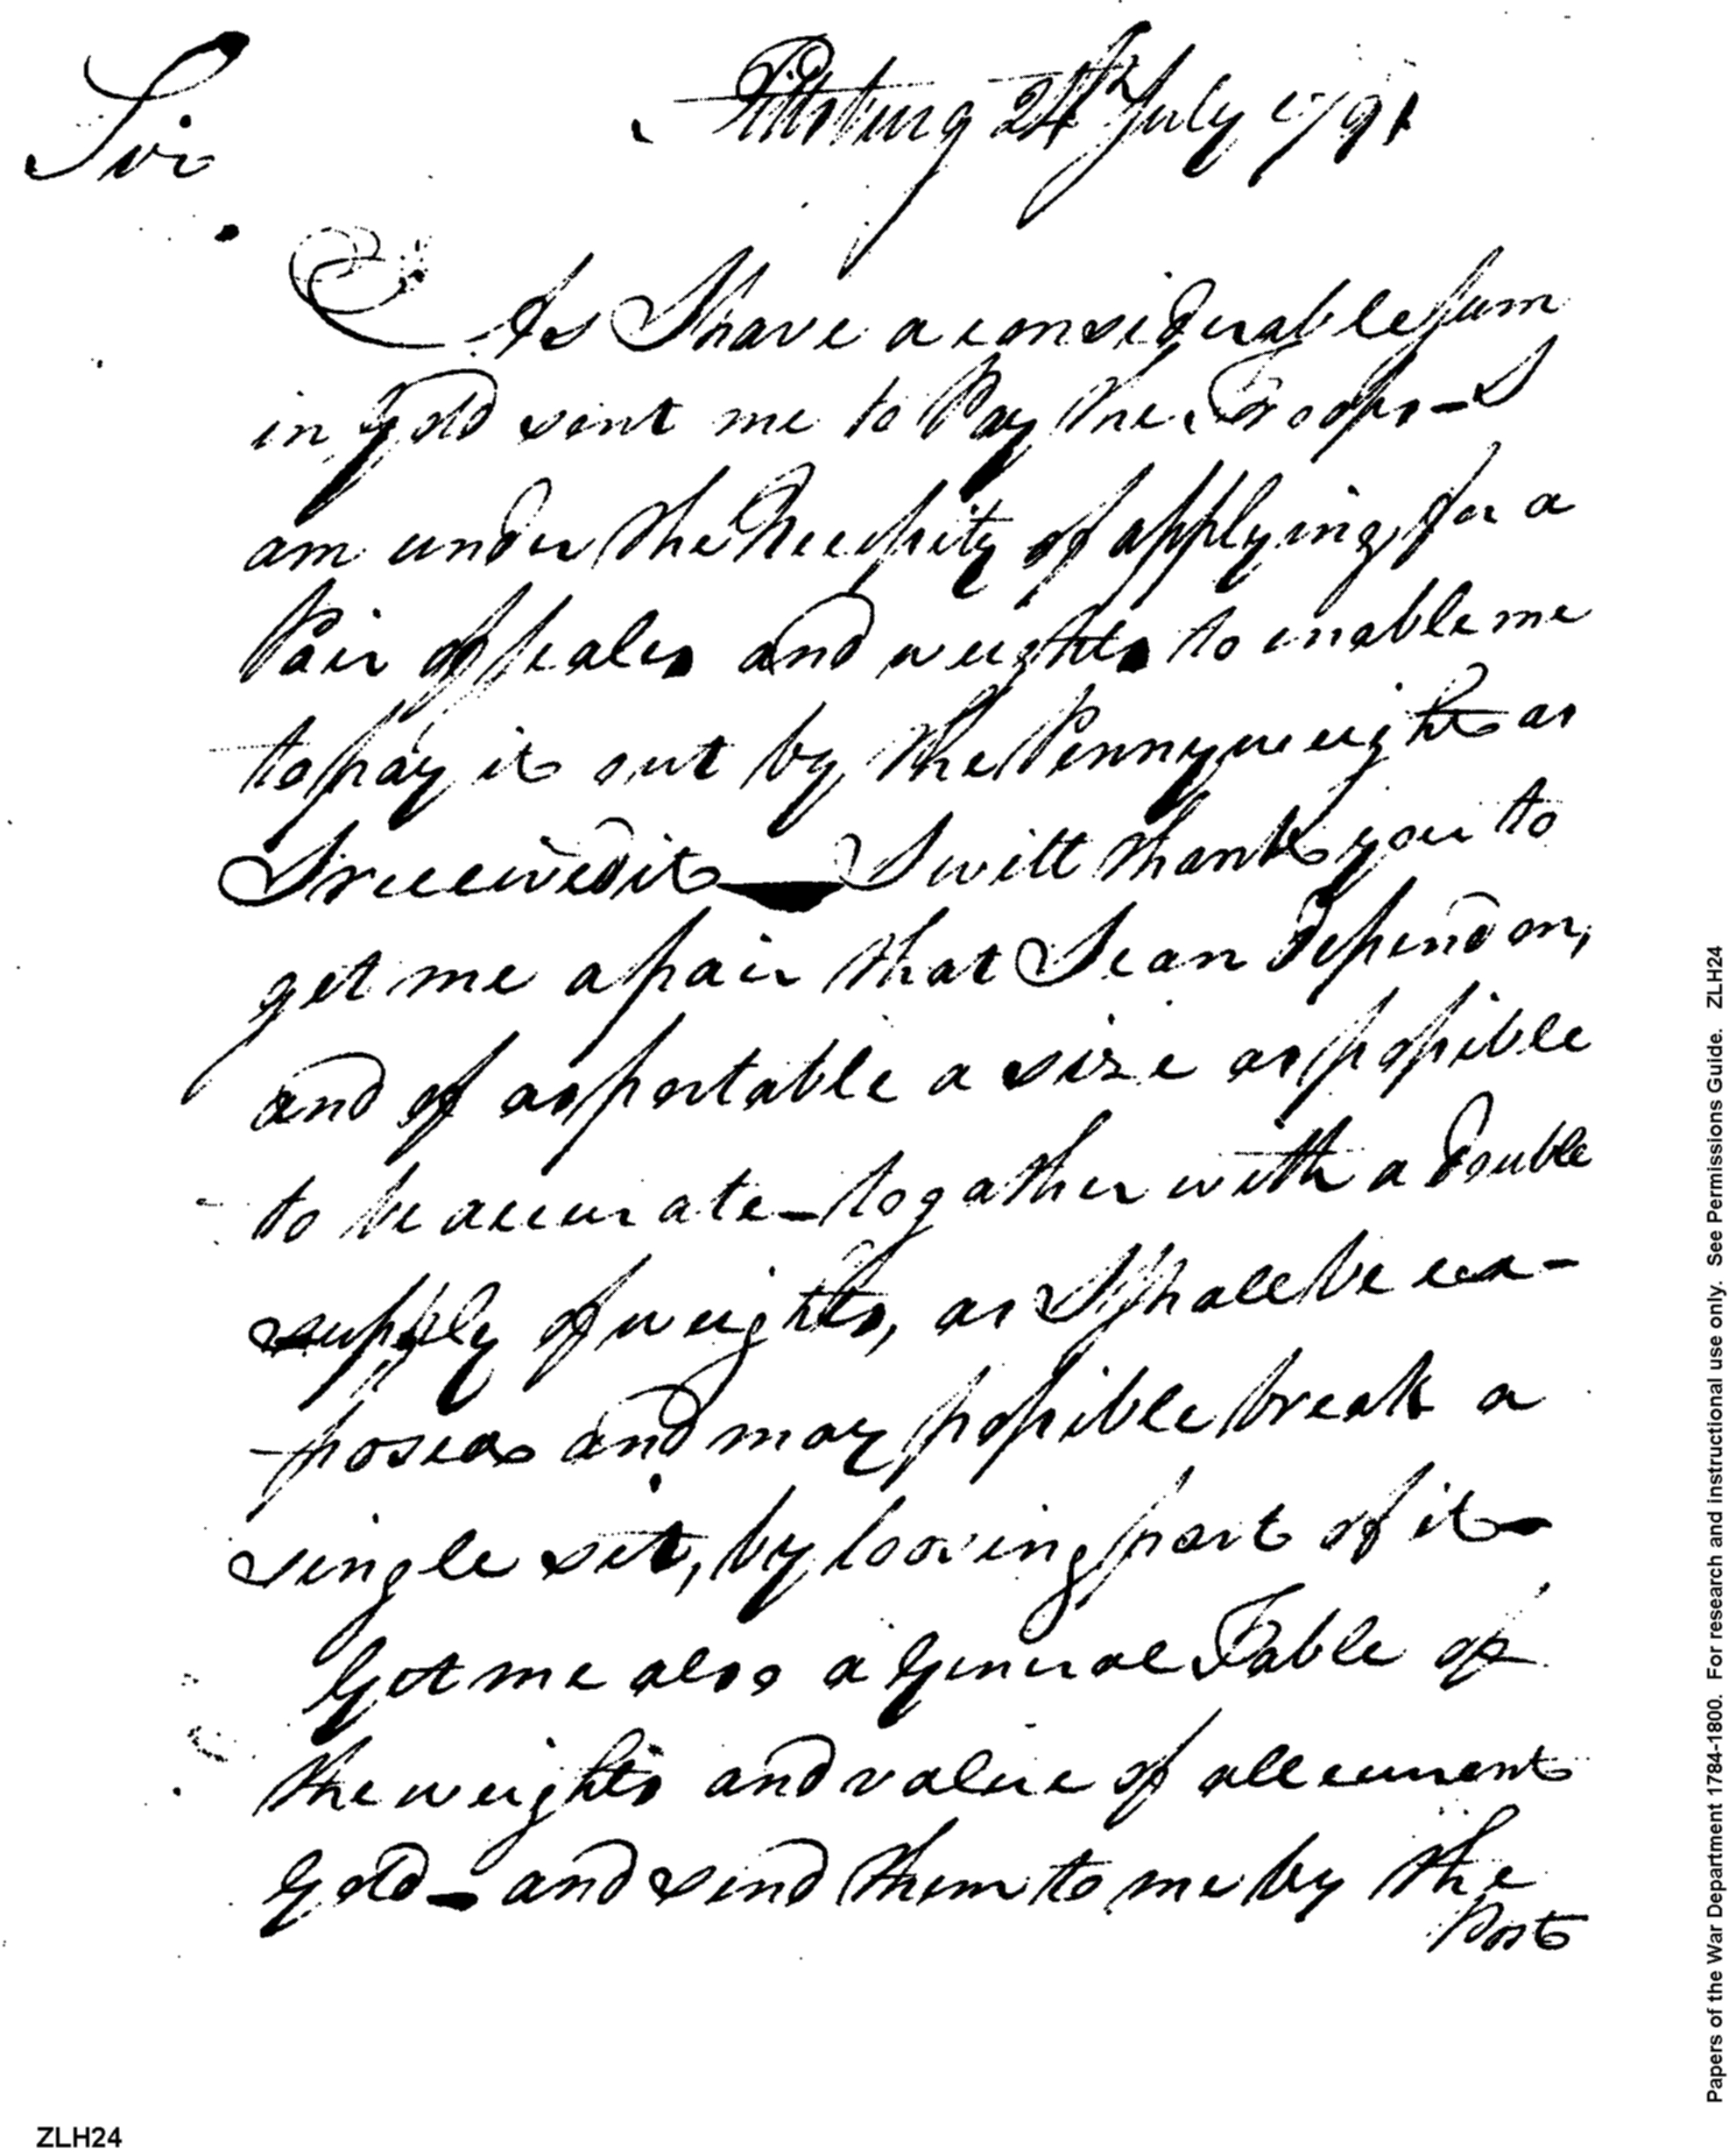 Sir
Pittsburg 24th July 1791
As I have a considerable sum
in Gold sent me to Pay the Troops — I
am under the Necessity of applying for a
Pair of scales and weights to enable me
to pay it out by the Pennyweight as
I received it — I will thank you to
get me a pair that I can depend on,
and of as portable a size as possible
to be accurate — togather with a double
supply of weights, as I shall be ex-
-posed and may possible break a
single set, by loosing part of it —
Get me also a General Table of
the weights and value of all current
Gold — and send them to me by the
Post
Papers of the War Department 1784-1800. For research and instructional use only. See Permissions Guide. ZLH24
ZLH24